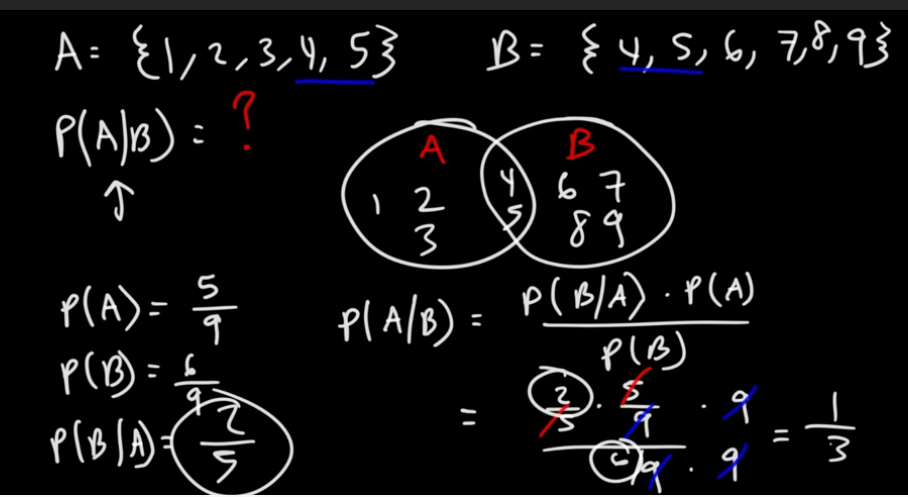 A = {1, 2, 3, 4, 5} B = {4, 5, 6, 7, 8, 9}
P(A|B) = ?
A B
1 2 3 4 5 6 7 8 9
P(A) = 5/9
P(B) = 6/9
P(B|A) = 2/5
P(A|B) = P(B|A) · P(A) / P(B)
= 2/5 · 5/9 · 9 / 6/9 · 9 = 1/3